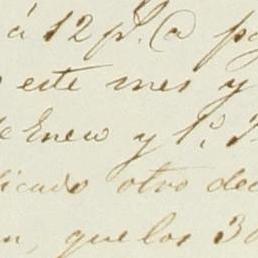 á 12 p.s @ pa
este mes y
de Enero y 1.º F
dicado otro dec
n, que los 30